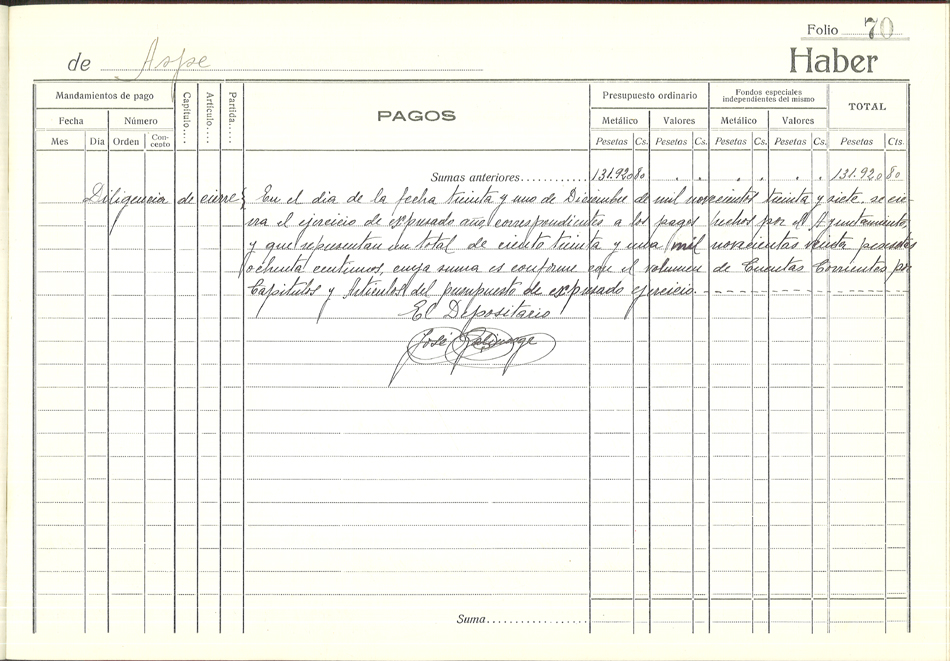 Folio 70
de Aspe
Haber
Mandamientos de pago
Capítulo...
Artículo....
Partida.....
PAGOS
Presupuesto ordinario
Fondos especiales independientes del mismo
TOTAL
Fecha Número
Metálico Valores Metálico Valores
Mes Día Orden Concepto
Pesetas Cs. Pesetas Cs. Pesetas Cs. Pesetas Cs. Pesetas Cts.
Sumas anteriores............ 131.920 80 . . . . . . 131.920 80
Diligencia de cierre} En el dia de la fecha treinta y uno de Diciembre de mil novecientos treinta y siete, se cie-
rra el ejercicio de expresado año, correspondientes a los pagos hechos por el Ayuntamiento,
y que representan un total de ciento treinta y una mil novecientas veinte pesetas
ochenta centimos, cuya suma es conforme con el volumen de Cuentas Corrientes por
Capitulos y Articulos del presupuesto de expresado ejercicio.
El Depositario
José
Suma..................